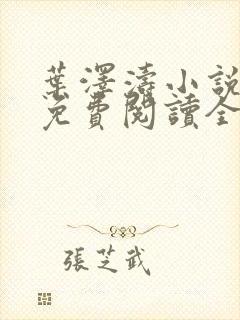 葉澤濤小說
免費閱讀全
張芝武